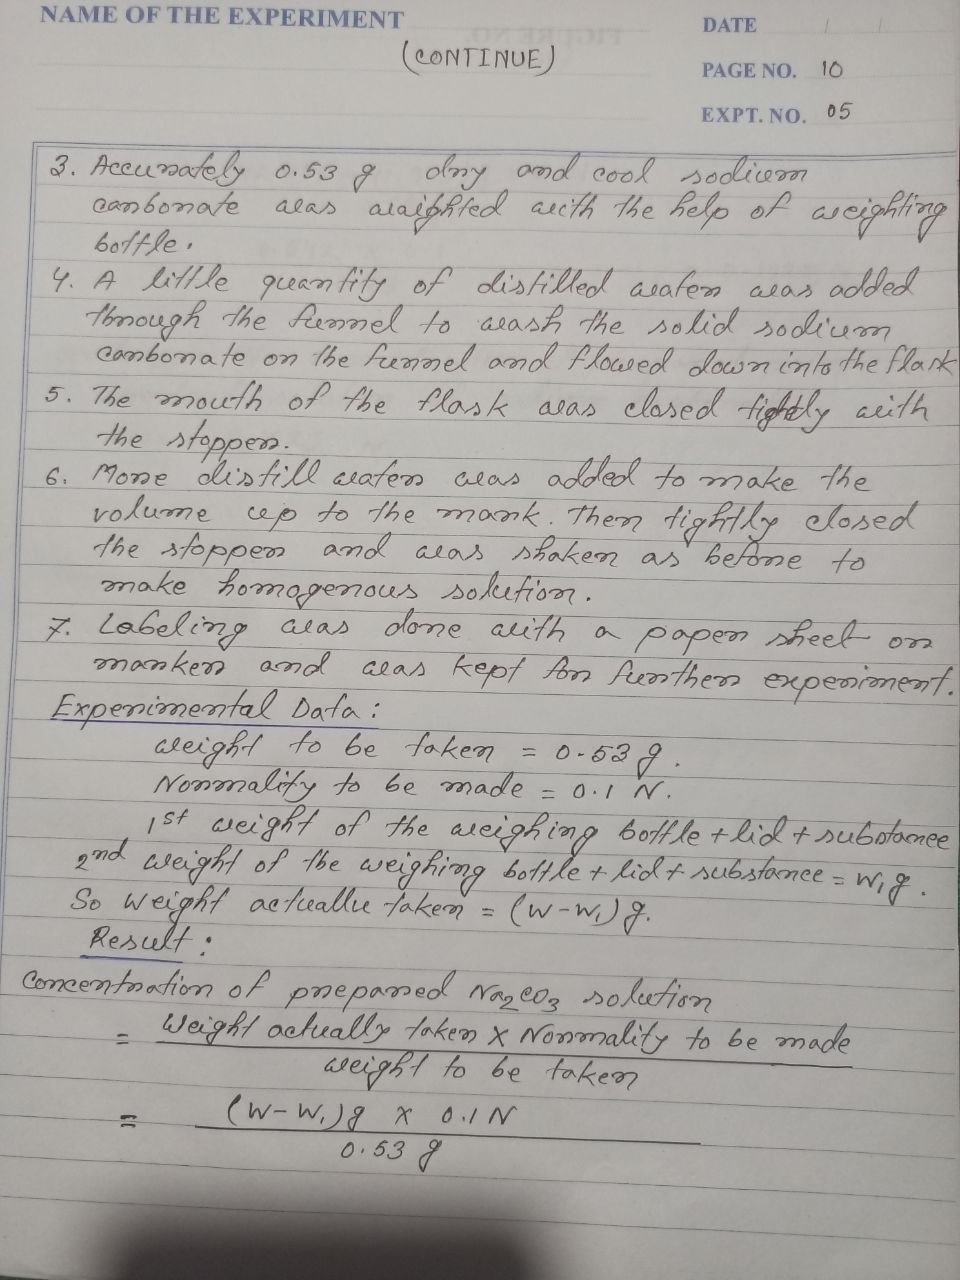 NAME OF THE EXPERIMENT
(CONTINUE)
DATE
PAGE NO. 10
EXPT. NO. 05
3. Accurately 0.53 g dry and cool sodium
carbonate was waighted with the help of weighting
bottle.
4. A little quantity of distilled water was added
through the funnel to wash the solid sodium
carbonate on the funnel and flowed down into the flask
5. The mouth of the flask was closed tightly with
the stopper.
6. More distill water was added to make the
volume up to the mark. Then tightly closed
the stopper and was shaken as before to
make homogenous solution.
7. Labeling was done with a paper sheet or
marker and was kept for further experiment.
Experimental Data:
weight to be taken = 0.53 g.
Normality to be made = 0.1 N.
1st weight of the weighing bottle + lid + substance
2nd weight of the weighing bottle + lid + substance = W₁ g.
So weight actuallu taken = (W-W₁) g.
Result:
Concentration of prepared Na₂CO₃ solution
= Weight actually taken X Normality to be made
weight to be taken
= (W-W₁)g X 0.1 N
0.53 g